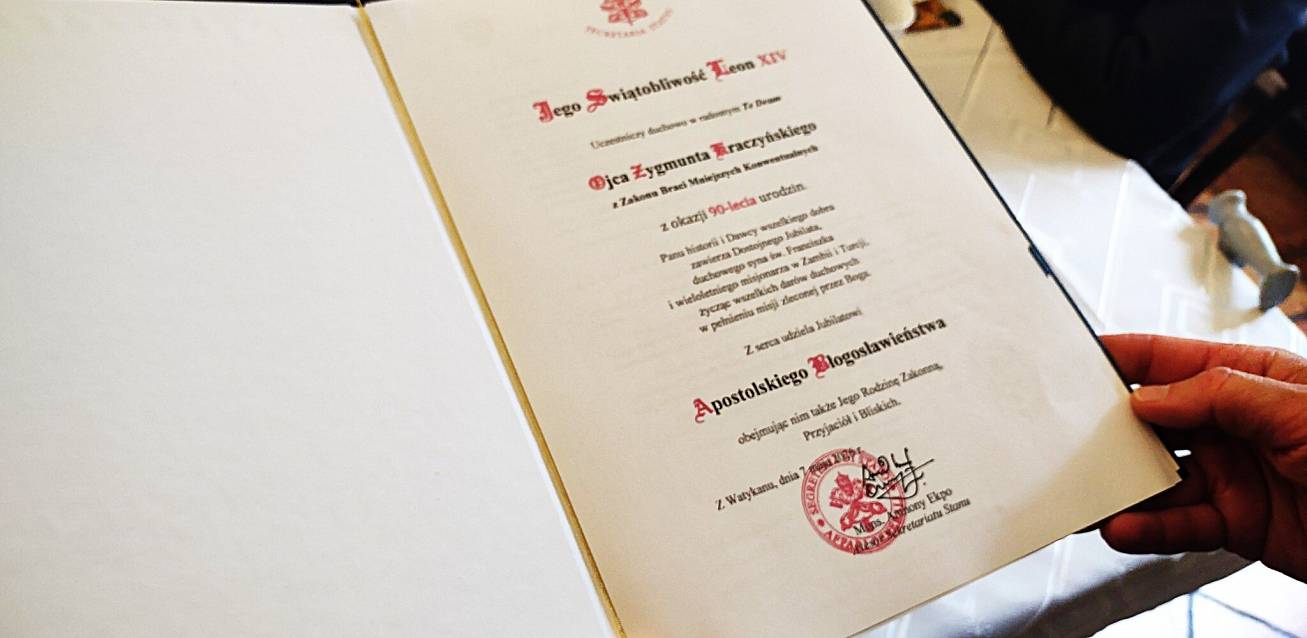 SEGRETERIA STATUS
Jego Świątobliwość Leon XIV
Uczestniczy duchowo w radosnym Te Deum
Ojca Zygmunta Kraczyńskiego
z Zakonu Braci Mniejszych Konwentualnych
z okazji 90-lecia urodzin.
Panu historii i Dawcy wszelkiego dobra
zawierza Dostojnego Jubilata,
duchowego syna św. Franciszka
i wieloletniego misjonarza w Zambii i Turcji,
życząc wszelkich darów duchowych
w pełnieniu misji zleconej przez Boga.
Z serca udziela Jubilatowi
Apostolskiego Błogosławieństwa
obejmując nim także Jego Rodzinę Zakonną,
Przyjaciół i Bliskich.
Z Watykanu, dnia 7 maja
Mons. Anthony Ekpo
Asesor Sekretariatu Stanu